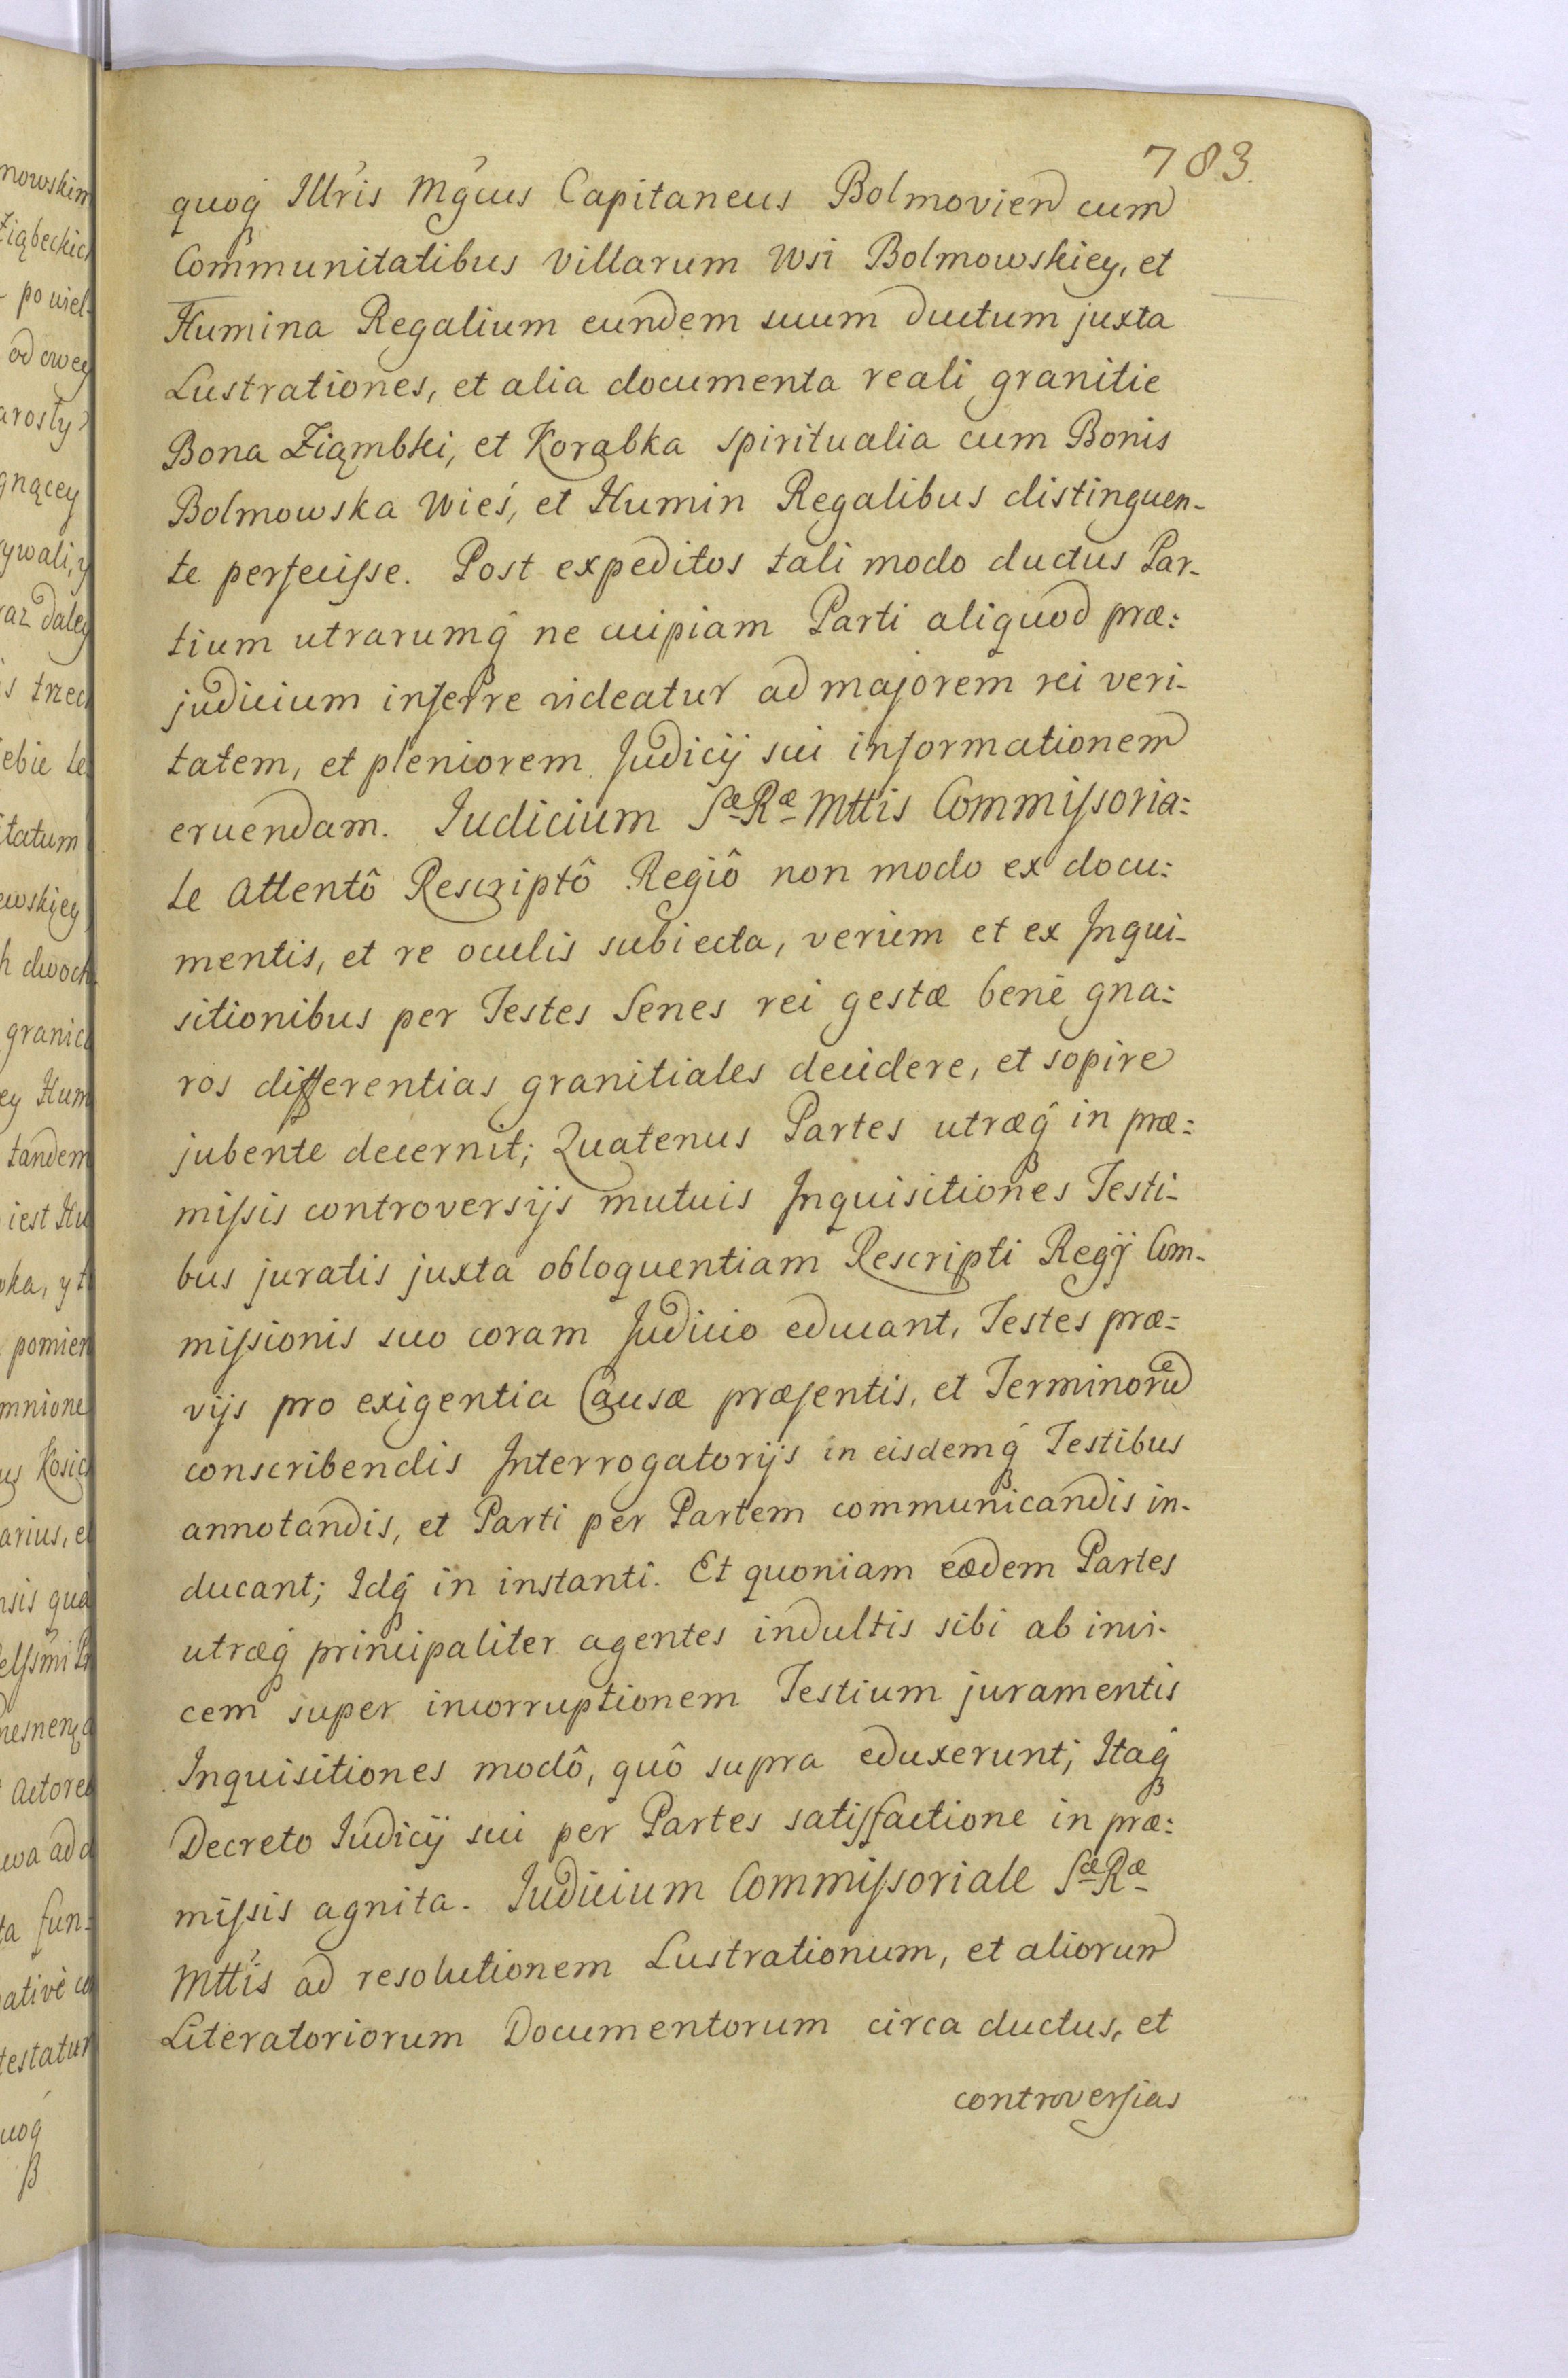 783.
quoq́ Illris Mgcus Capitaneus Bolmovien cum
Communitatibus Villarum Wsi Bolmowskiey, et
Humina Regalium eundem suum ductum juxta
Lustrationes, et alia documenta reali granitie
Bona Ziąmbki, et Korabka spiritualia cum Bonis
Bolmowska Wieś, et Humin Regalibus distinguen-
te perfecisse. Post expeditos tali modo ductus Par-
tium utrarumq́ ne cuipiam Parti aliquod præ:
judicium inferre videatur ad majorem rei veri-
tatem, et pleniorem Judicij sui informationem
eruendam. Judicium Sæ Ræ Mttis Commissoria:
le Attentô Rescriptô Regiô non modo ex docu:
mentis, et re oculis subiecta, verùm et ex Inqui-
sitionibus per Testes Senes rei gestæ benè gna:
ros differentias granitiales decidere, et sopire
jubente decernit; Quatenus Partes utræq́ in præ:
missis controversijs mutuis Inquisitiones Testi-
bus juratis juxta obloquentiam Rescripti Regÿ Com-
missionis suo coram Judicio educant, Testes præ-
vijs pro exigentia Causæ præsentis, et Terminorũ
conscribendis Interrogatorijs in eisdemq́ Testibus
annotandis, et Parti per Partem communicandis in-
ducant; Idq́ in instanti. Et quoniam eædem Partes
utræq́ principaliter agentes indultis sibi ab invi-
cem super incorruptionem Testium juramentis
Inquisitiones modô, quô supra eduxerunt; Itaq́
Decreto Judicij sui per Partes satisfactione in præ:
missis agnita. Judicium Commissoriale Sæ Ræ
Mttis ad resolutionem Lustrationum, et aliorum
Literatoriorum Documentorum circa ductus, et
controversias